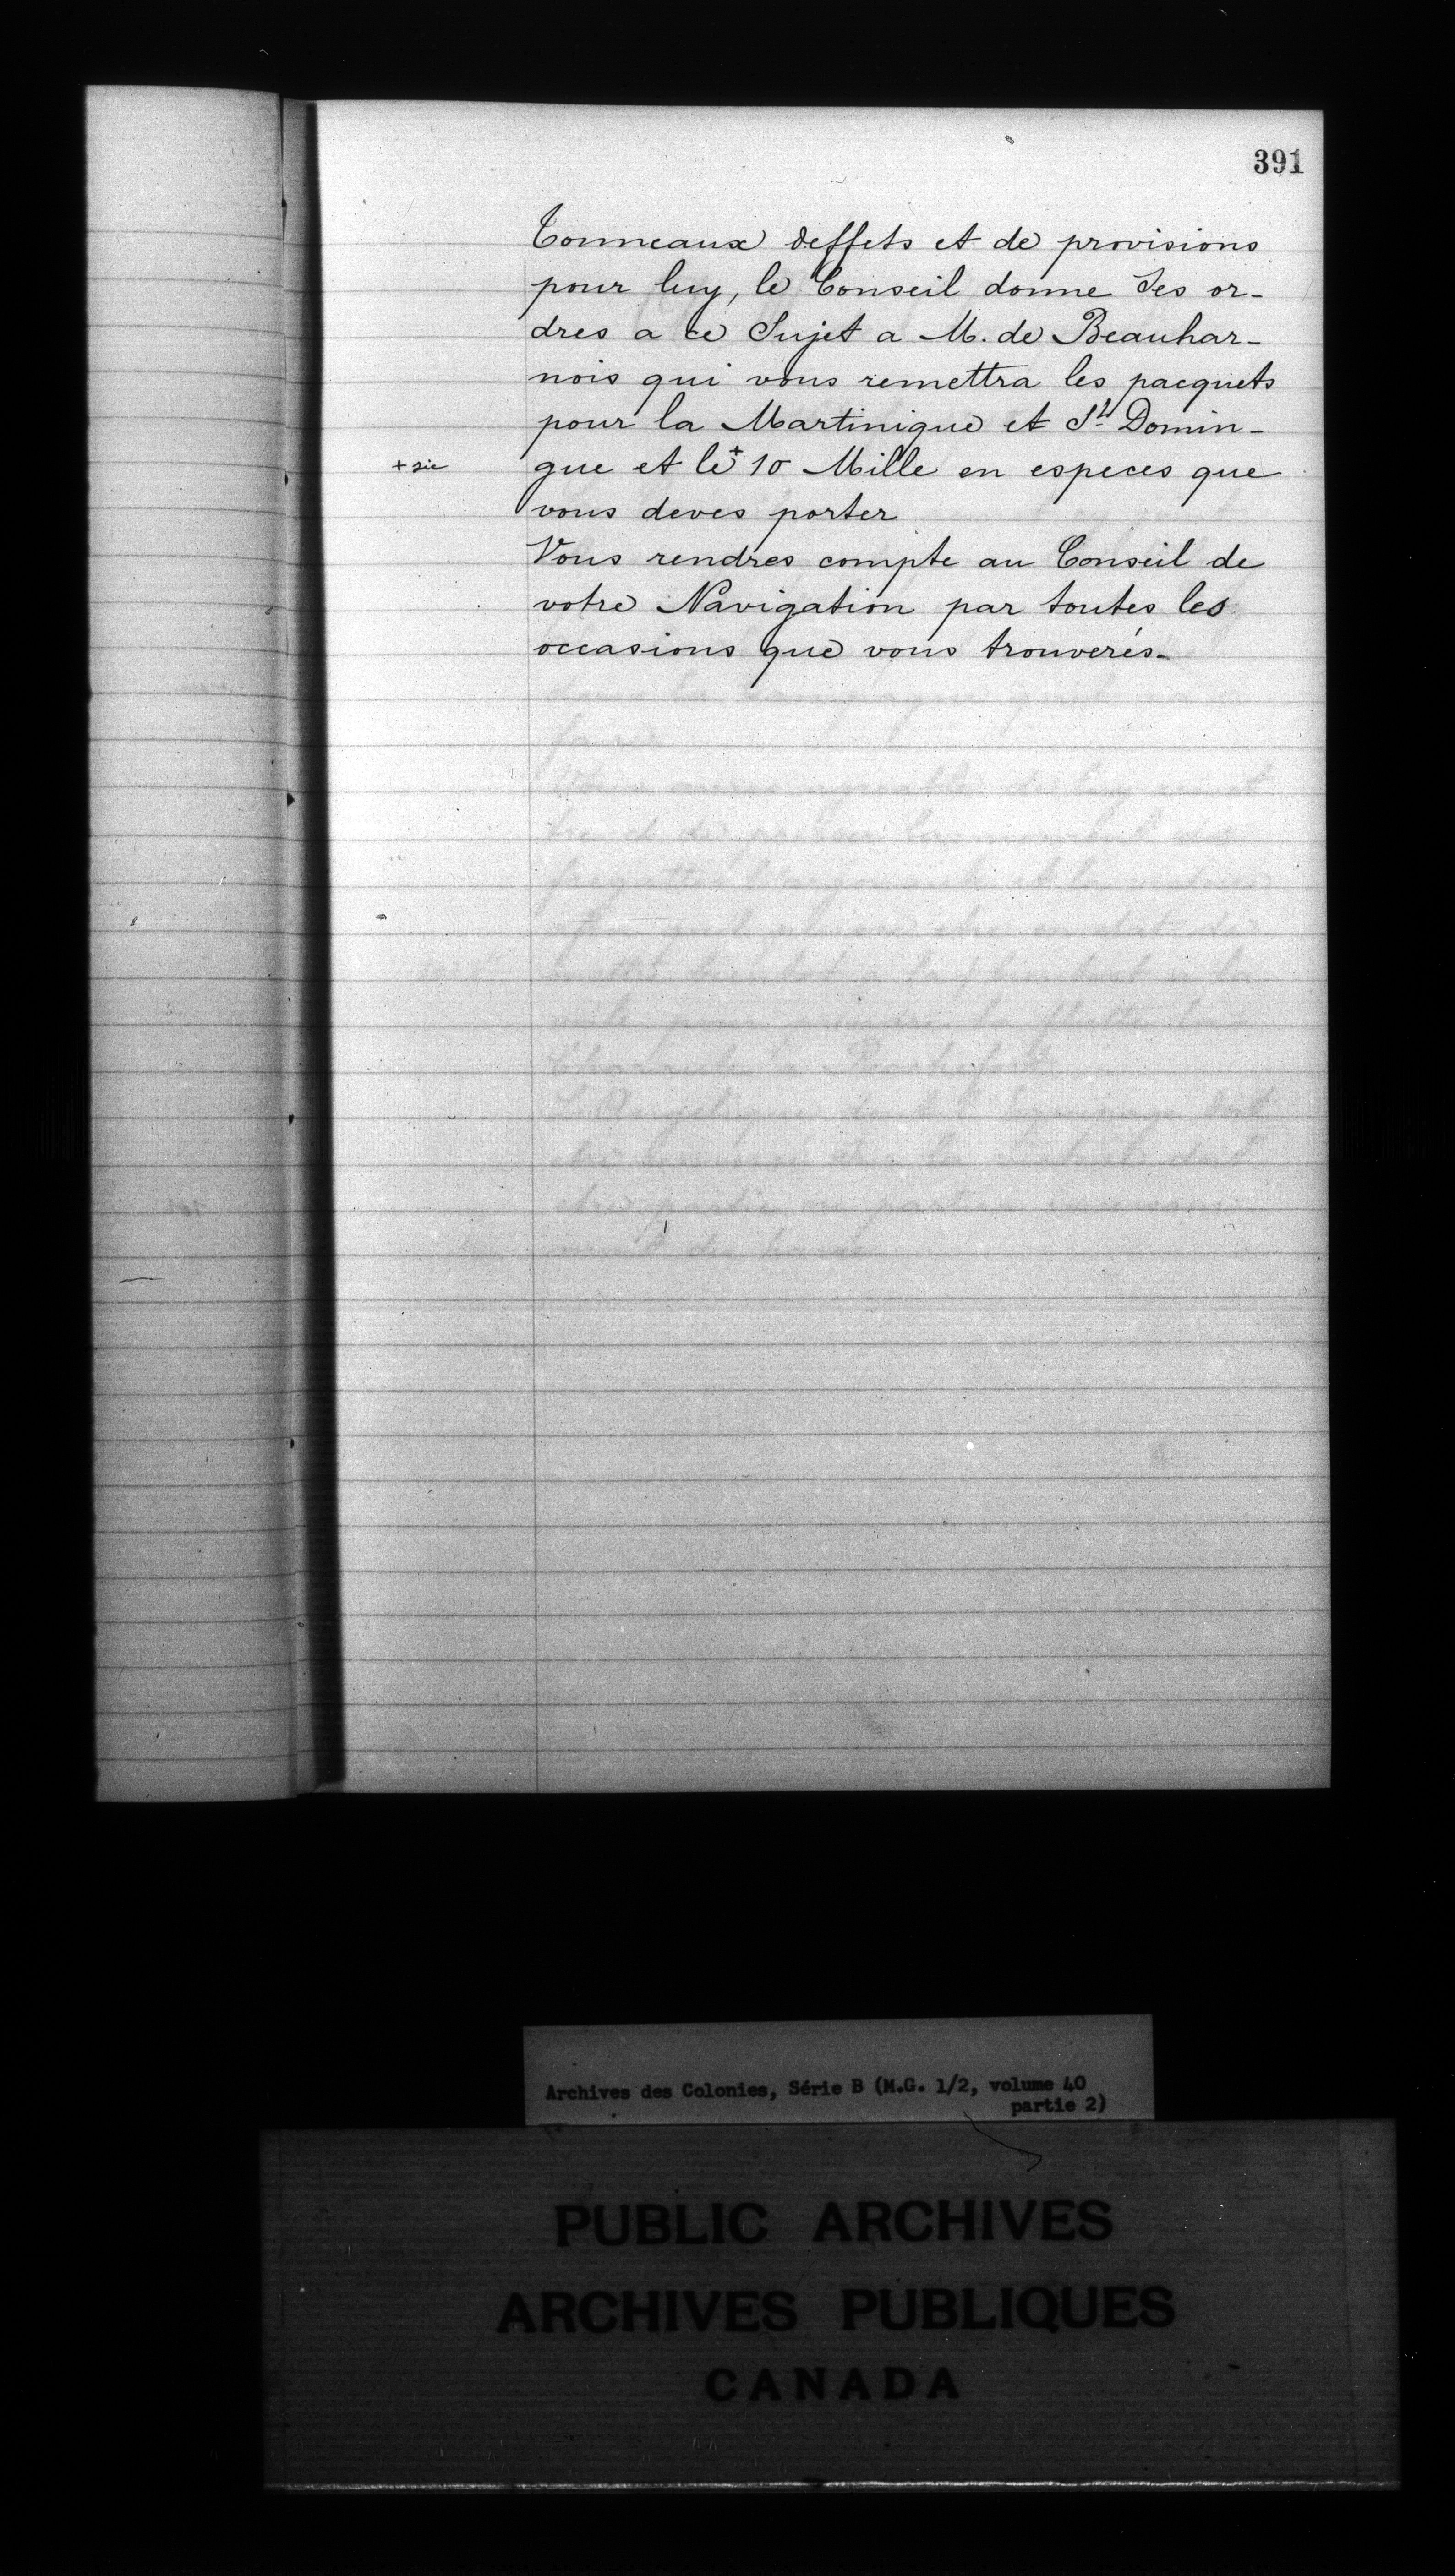 391
Tonneaux deffets et de provisions
pour luy, le Conseil donne Ses or-
dres a ce Sujet a M. de Beauhar-
nois qui vous remettra les pacquets
pour la Martinique et St Domin-
+ sic
gue et le + 10 Mille en especes que
vous deves porter
Vous rendres compte au Conseil de
votre Navigation par toutes les
occasions que vous trouverés.
Archives des Colonies, Série B (M.G. 1/2, volume 40
partie 2)
PUBLIC ARCHIVES
ARCHIVES PUBLIQUES
CANADA